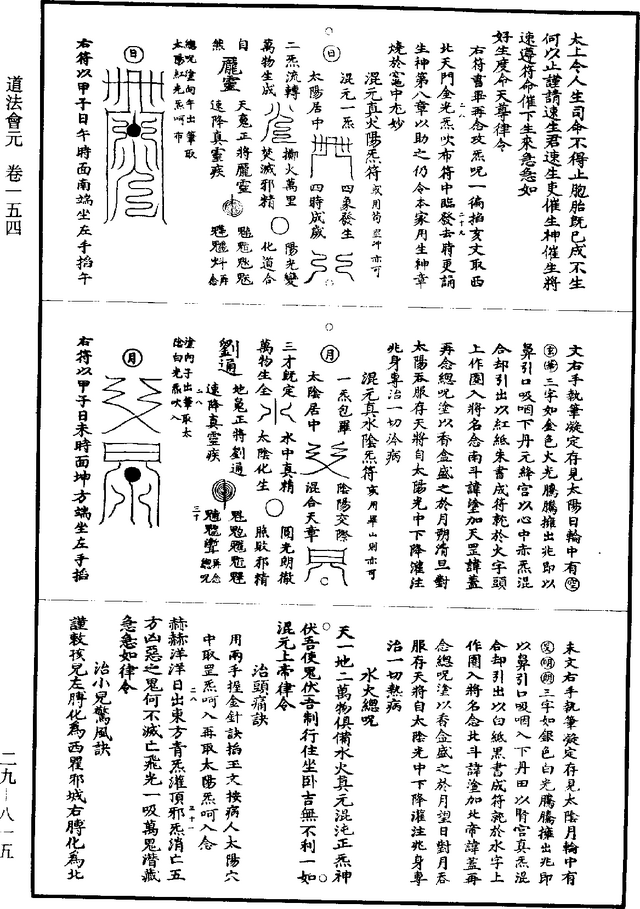 太上令人生司命不得止胞胎既已成不生
何以止謹請速生君速生吏催生神催生將
速遵符命催下生來急急如
好生度命天尊律令
右符書畢再念攻炁呪一徧掐亥文取西
北天門金光炁吹布符中臨發去時更誦
生神第八章以助之仍令本家用生神章
燒於竈中尤妙
混元真火陽炁符
混元一炁
四象發生
太陽居中
四時成歲
二炁流轉
擲火萬里
陽光變
萬物生成
焚滅邪精
化道合
自
龐靈
天蒐正將龐靈
然
速降真靈疾
總呪塗向午出筆取
太陽紅光炁呵布
日
右符以甲子日午時面南端坐左手掐午
文右手執筆凝定存見太陽日輪中有
三字如金色火光騰騰擁出兆即以
鼻引口吸咽下丹元絳宮以心中赤炁混
合却引出以紅紙朱書成符乾於火字頭
上作圈入將名念南斗諱塗加天罡諱蓋
再念總呪塗以香盒盛之於月朔清旦對
太陽吞服存天將自太陽光中下降灌注
兆身專治一切冷病
混元真水陰炁符
一炁包羅
陰陽交際
太陰居中
混合天章
三才既定
水中真精
圓光朗徹
萬物生全
太陰化生
賬敗邪精
劉通
地蒐正將劉通
速降真靈疾
塗內子出筆取太
陰白光炁吹入
月
右符以甲子日未時面坤方端坐左手掐
未文右手執筆凝定存見太陰月輪中有
三字如銀色白光騰騰擁出兆即
以鼻引口吸咽入下丹田以腎宮真炁混
合却引出以白紙黑書成符乾於水字上
作圈入將名念北斗諱塗加北帝諱蓋再
念總呪塗以香盒盛之於月望日對月吞
服存天將自太陰光中下降灌注兆身專
治一切熱病
水火總呪
天一地二萬物俱備水火真元混沌正炁神
伏吾使鬼伏吾制行住坐卧吉無不利一如
混元上帝律令
治頭痛訣
用兩手握金針訣掐玉文按病人太陽穴
中取罡炁呵入再取太陽炁呵入念
赫赫洋洋日出東方青炁灌頂邪炁消亡五
方凶惡之鬼何不滅亡飛光一吸萬鬼潛藏
急急如律令
治小兒驚風訣
謹敕孩兒左脾化為西瞿邪城右脾化為北
道法會元　卷一五四
二九—八一五